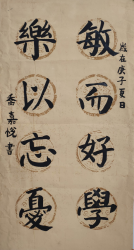 敏而好學
樂以忘憂
歲在庚子夏日
香嘉悅書